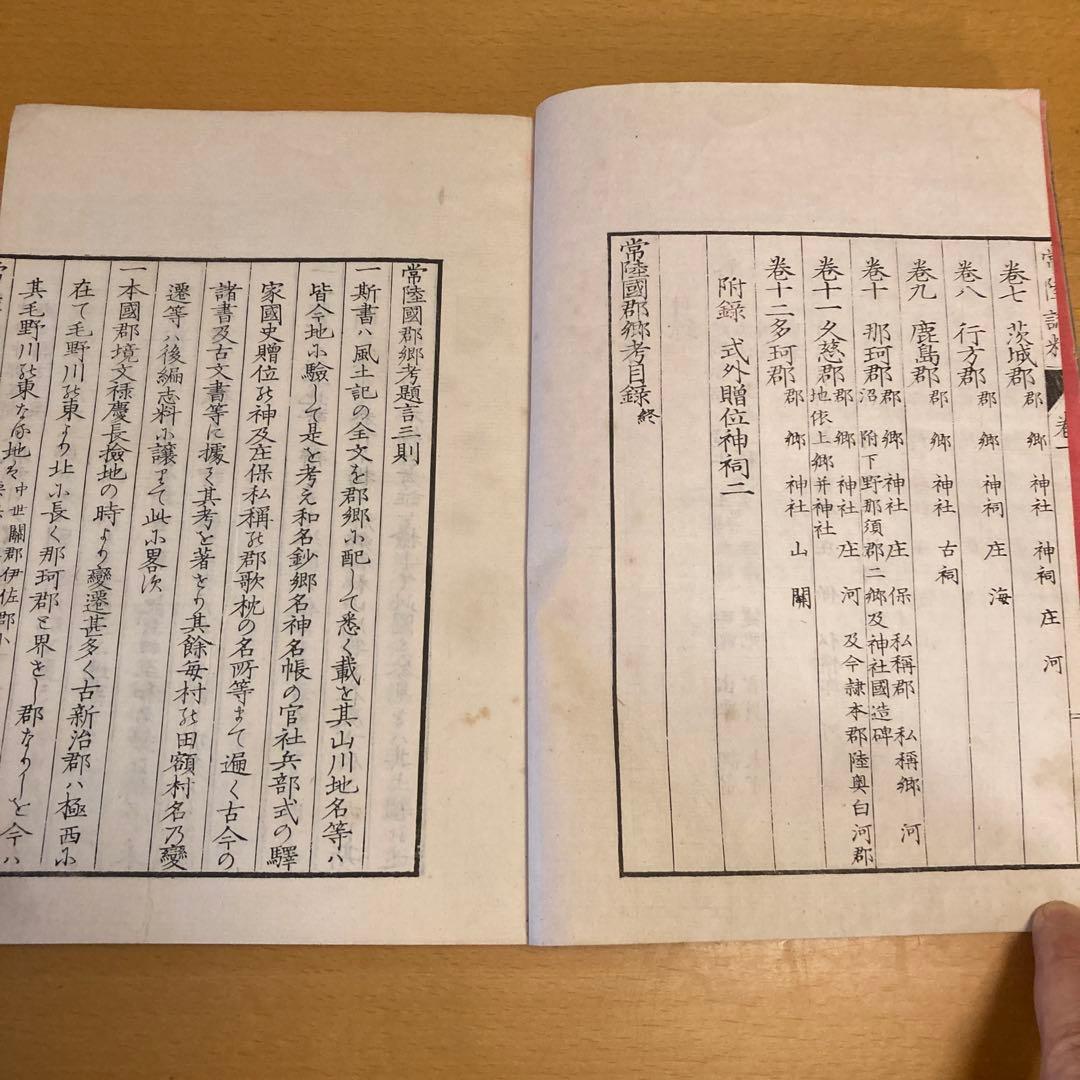 常陸誌料 卷一
卷七 茨城郡 郡 郷 神社 神祠 庄 河
卷八 行方郡 郡 郷 神祠 庄 海
卷九 鹿島郡 郡 郷 神社 古祠
卷十 那珂郡 郡 郷 神社 庄 保 私稱郡 私稱郷 河
沼 附下野那須郡二郷及神社國造碑
卷十一 久慈郡 郡 郷 神社 庄 河 及今隷本郡陸奥白河郡
地依上郷并神社
卷十二 多珂郡 郡 郷 神社 山 關
附錄 式外贈位神祠二
常陸國郡郷考目錄 終
常陸國郡郷考題言三則
一斯書ハ風土記の全文を郡郷尓配して悉く載を其山川地名等ハ
皆今地尓驗して是を考え和名鈔郷名神名帳の官社兵部式の驛
家國史贈位乃神及庄保私稱乃郡歌枕の名所等まて遍く古今の
諸書及古文書等に據て其考を著せり其餘每村乃田額村名乃變
遷等ハ後編志料尓讓りて此尓畧次
一本國郡境文禄慶長撿地の時より變遷甚多く古新治郡ハ極西尓
在て毛野川乃東より北尓長く那珂郡と界せし郡なりしを今ハ
其毛野川乃東なる地を中世關郡伊佐郡小